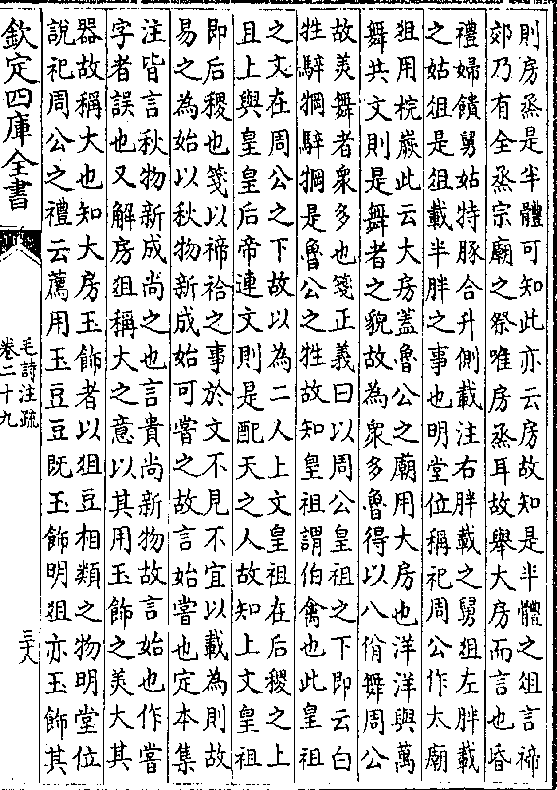 則房烝是半體可知此亦云房故知是半體之俎言禘
郊乃有全烝宗廟之祭唯房烝耳故舉大房而言也昏
禮婦饋舅姑特豚合升側載注右胖載之舅俎左胖載
之姑俎是俎載半胖之事也明堂位稱祀周公作太廟
俎用梡嶡此云大房蓋魯公之廟用大房也洋洋與萬
舞共文則是舞者之貌故為衆多魯得以八佾舞周公
故美舞者衆多也箋正義曰以周公皇祖之下即云白
牡騂犅騂犅是魯公之牲故知皇祖謂伯禽也此皇祖
之文在周公之下故以為二人上文皇祖在后稷之上
且上與皇皇后帝連文則是配天之人故知上文皇祖
即后稷也箋以禘祫之事於文不見不宜以載為則故
易之為始以秋物新成始可嘗之故言始嘗也定本集
注皆言秋物新成尚之也言貴尚新物故言始也作嘗
字者誤也又解房俎稱大之意以其用玉飾之美大其
器故稱大也知大房玉飾者以俎豆相類之物明堂位
說祀周公之禮云薦用玉豆豆既玉飾明俎亦玉飾其
欽定四庫全書
毛詩注疏
卷二十九
三八